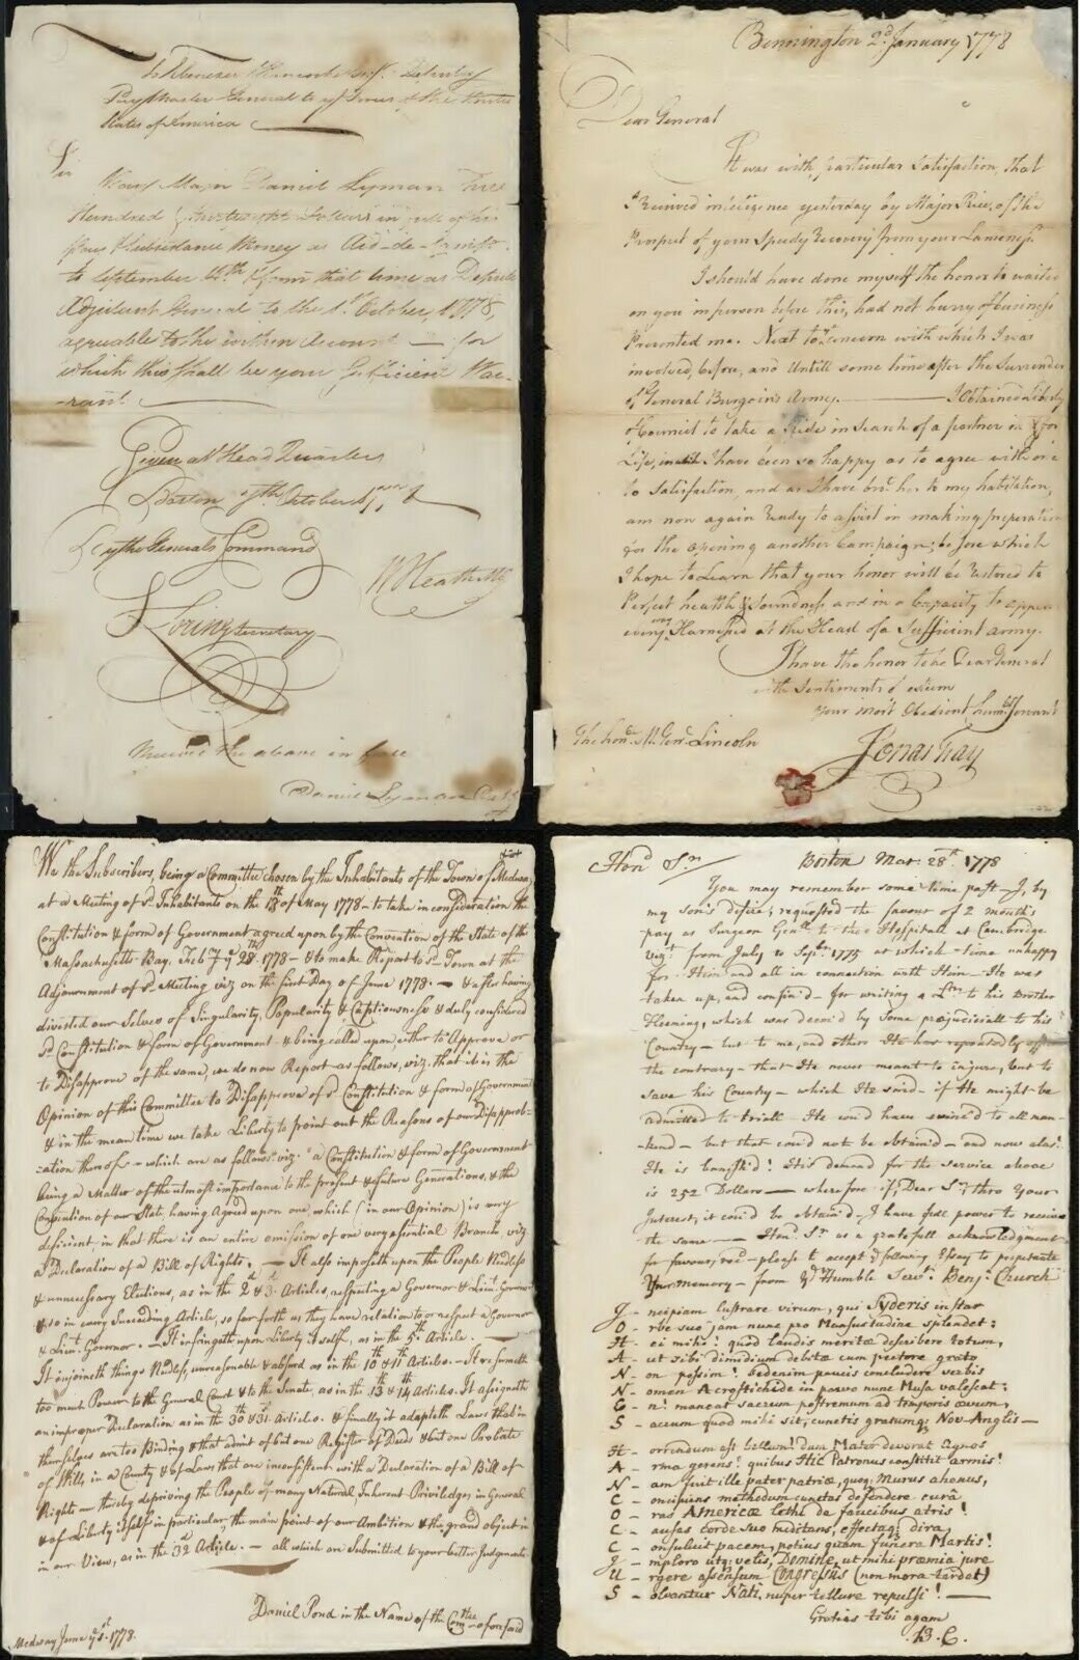 To Ebenezer Hancock Esqr. Deputy
Pay Master General to ye Forces of the United
States of America
Sir
Pay Major Daniel Lyman Three
Hundred & Dollars in full of his
Pay & Subsistance Money as Aid-de-Camp
to September & from that time as Deputy
Adjutant General to the 1st. October, 1778,
agreeable to the within Account — for
which this shall be your sufficient War-
-rant.
Given at Head Quarters
Boston 7th. October 1778
By the Generals Command
W Heath MG
J Loring Secretary
Received the above in full
Daniel Lyman
Bennington 2d. January 1778
Dear General
It was with particular satisfaction, that
I Received inteligence yesterday by Major Rice, of the
Prospect of your Speedy Recovery from your Lameness.
I should have done myself the honor to waited
on you in person before this, had not hurry of business
Prevented me. Next to ye concern with which I was
involved, before, and Untill some time after the Surrender
of General Burgoin's Army. — I obtained a liberty
of Council to take a Ride in search of a partner in for
Life, I have been so happy as to agree with one
to satisfaction, and as I have brot. her to my habitation,
am now again Ready to assist in making preparation
for the opening another Campaign; before which
I hope to Learn that your honor will be Restored to
Perfect health & soundness and in a Capacity to appear
Harnessed at the Head of a Sufficient army.
I have the honor to be Dear General
with Sentiments of esteem
your most Obedient humb. Servant
The honbl. M. Genl. Lincoln
Jonas Fay
We the Subscribers, being a Committee chosen by the Inhabitants of the Town of Medway,
at a Meeting of sd. Inhabitants on the 18th of May 1778 - to take in consideration the
Constitution & form of Government agreed upon by the Convention of the State of the
Massachusetts-Bay, Feby. ye 28th. 1778 — & to make Report to sd. Town at the
Adjournment of sd. Meeting viz on the first Day of June 1778. — & after having
divested our Selves of Singularity, Popularity & Captiousness & duly considered
sd. Constitution & form of Government - & being called upon either to Approve or
to Disapprove of the same, we do now Report as follows, viz. that it is the
Opinion of this Committee to Disapprove of sd. Constitution & form of Government
& in the mean time we take Liberty to point out the Reasons of our Disapprob-
-ation thereof - which are as follows. viz. a Constitution & form of Government
being a Matter of the utmost importance to the present & future Generations, & the
Convention of our State, having Agreed upon one, which (in our Opinion) is very
deficient, in that there is an entire omission of one very essential Branch, viz.
a Declaration of a Bill of Rights. — It also imposeth upon the People Needless
& unnecessary Elections, as in the 2d & 3d. Articles, respecting a Governor & Lieut. Governor
& so in every Succeeding Article, so far forth as they have relation to or respect a Governor
& Lieut. Governor. — It infringeth upon Liberty it self, as in the 5th Article. —
It enjoineth things Needless, unreasonable & absurd as in the 10th & 11th Articles. — It reserveth
too much Power to the General Court & to the Senate, as in the 13th & 14th Articles. It assigneth
an improper Declaration as in the 30th & 31st. Articles. & finally it adapteth Laws that in
themselves are too Binding & that admit of but one Register of Deeds & but one Probate
of Wills, in a County & of Laws that are inconsistent with a Declaration of a Bill of
Rights — thereby depriving the People of many Natural, Inherent Priviledges, in General
& of Liberty itself in particular, the main point of our Ambition & the grand object in
in our View, as in the 32d Article. — all which are Submitted to your better Judgments.
Daniel Pond in the Name of the Comtee. aforesaid
Medway June ye 1st. 1778.
Hond. Sr. Boston Mar. 28th. 1778
You may remember some time past - I, by
my son's desire, requested the favour of 2 months
pay as Surgeon Genll. to the Hospital at Cambridge
vizt. from July to Sepbr. 1775 at which time unhappy
for Him and all in connection with Him - He was
taken up, and confin'd - for writing a Ltr. to his Brother
Fleeming, which was deem'd by Some præjudiciall to his
Country - but to me, and others He has repeatedly
the contrary - that He never meant to injure, but to
save his Country - which He said - if He might be
admitted to triall - He cou'd have evinc'd to all man-
-kind - but that cou'd not be obtain'd - and now alas!
He is banish'd! His demand for the service above
is 252 Dollars — wherefore if, Dear Sr, thro Your
Interest, it cou'd be obtain'd - I have full power to receive
the same — Hond. Sr. as a gratefull acknowledgment
for favours, recd - please to accept ye following Essay to perpetuate
Your Memory - from Yr Humble Servt. Benja. Church
J - ncipiam lustrare virum, qui Syderis instar
O - rbe suo jam nunc pro Mansuetudine splendet:
H - ei mihi! quod laudis meritæ describere totum,
A - ut sibi dimidium debitæ cum pectore grato
N - on possim! tandenim paucis concludere verbis
N - omen Acrostichide in parvo nunc Musa valescat:
E - n! maneat sacrum postremum ad temporis ævum,
S - acrum quod mihi sit, cunctis gratumq; Nov-Anglis —
H - orrendum est bellum! dum Mater devorat Agnos
A - rma gerens! quibus Hic Patronus constitit armis!
N - am fuit ille pater patriæ, quoq; Murus ahenus,
C - oncipiens methodum cunctas defendere curâ
O - ras Americæ lethi de faucibus atris!
C - ausas corde suo meditans, effectaq; dira,
C - onsuluit pacem, potius quam funera Martis!
J - mploro utq; velis, Domine, ut mihi præmia jure
U - rgere assensum Congressûs (non mora tardet)
S - olvantur Nati, nuper tellure repulsi! —
Gratias tibi agam
B. C.